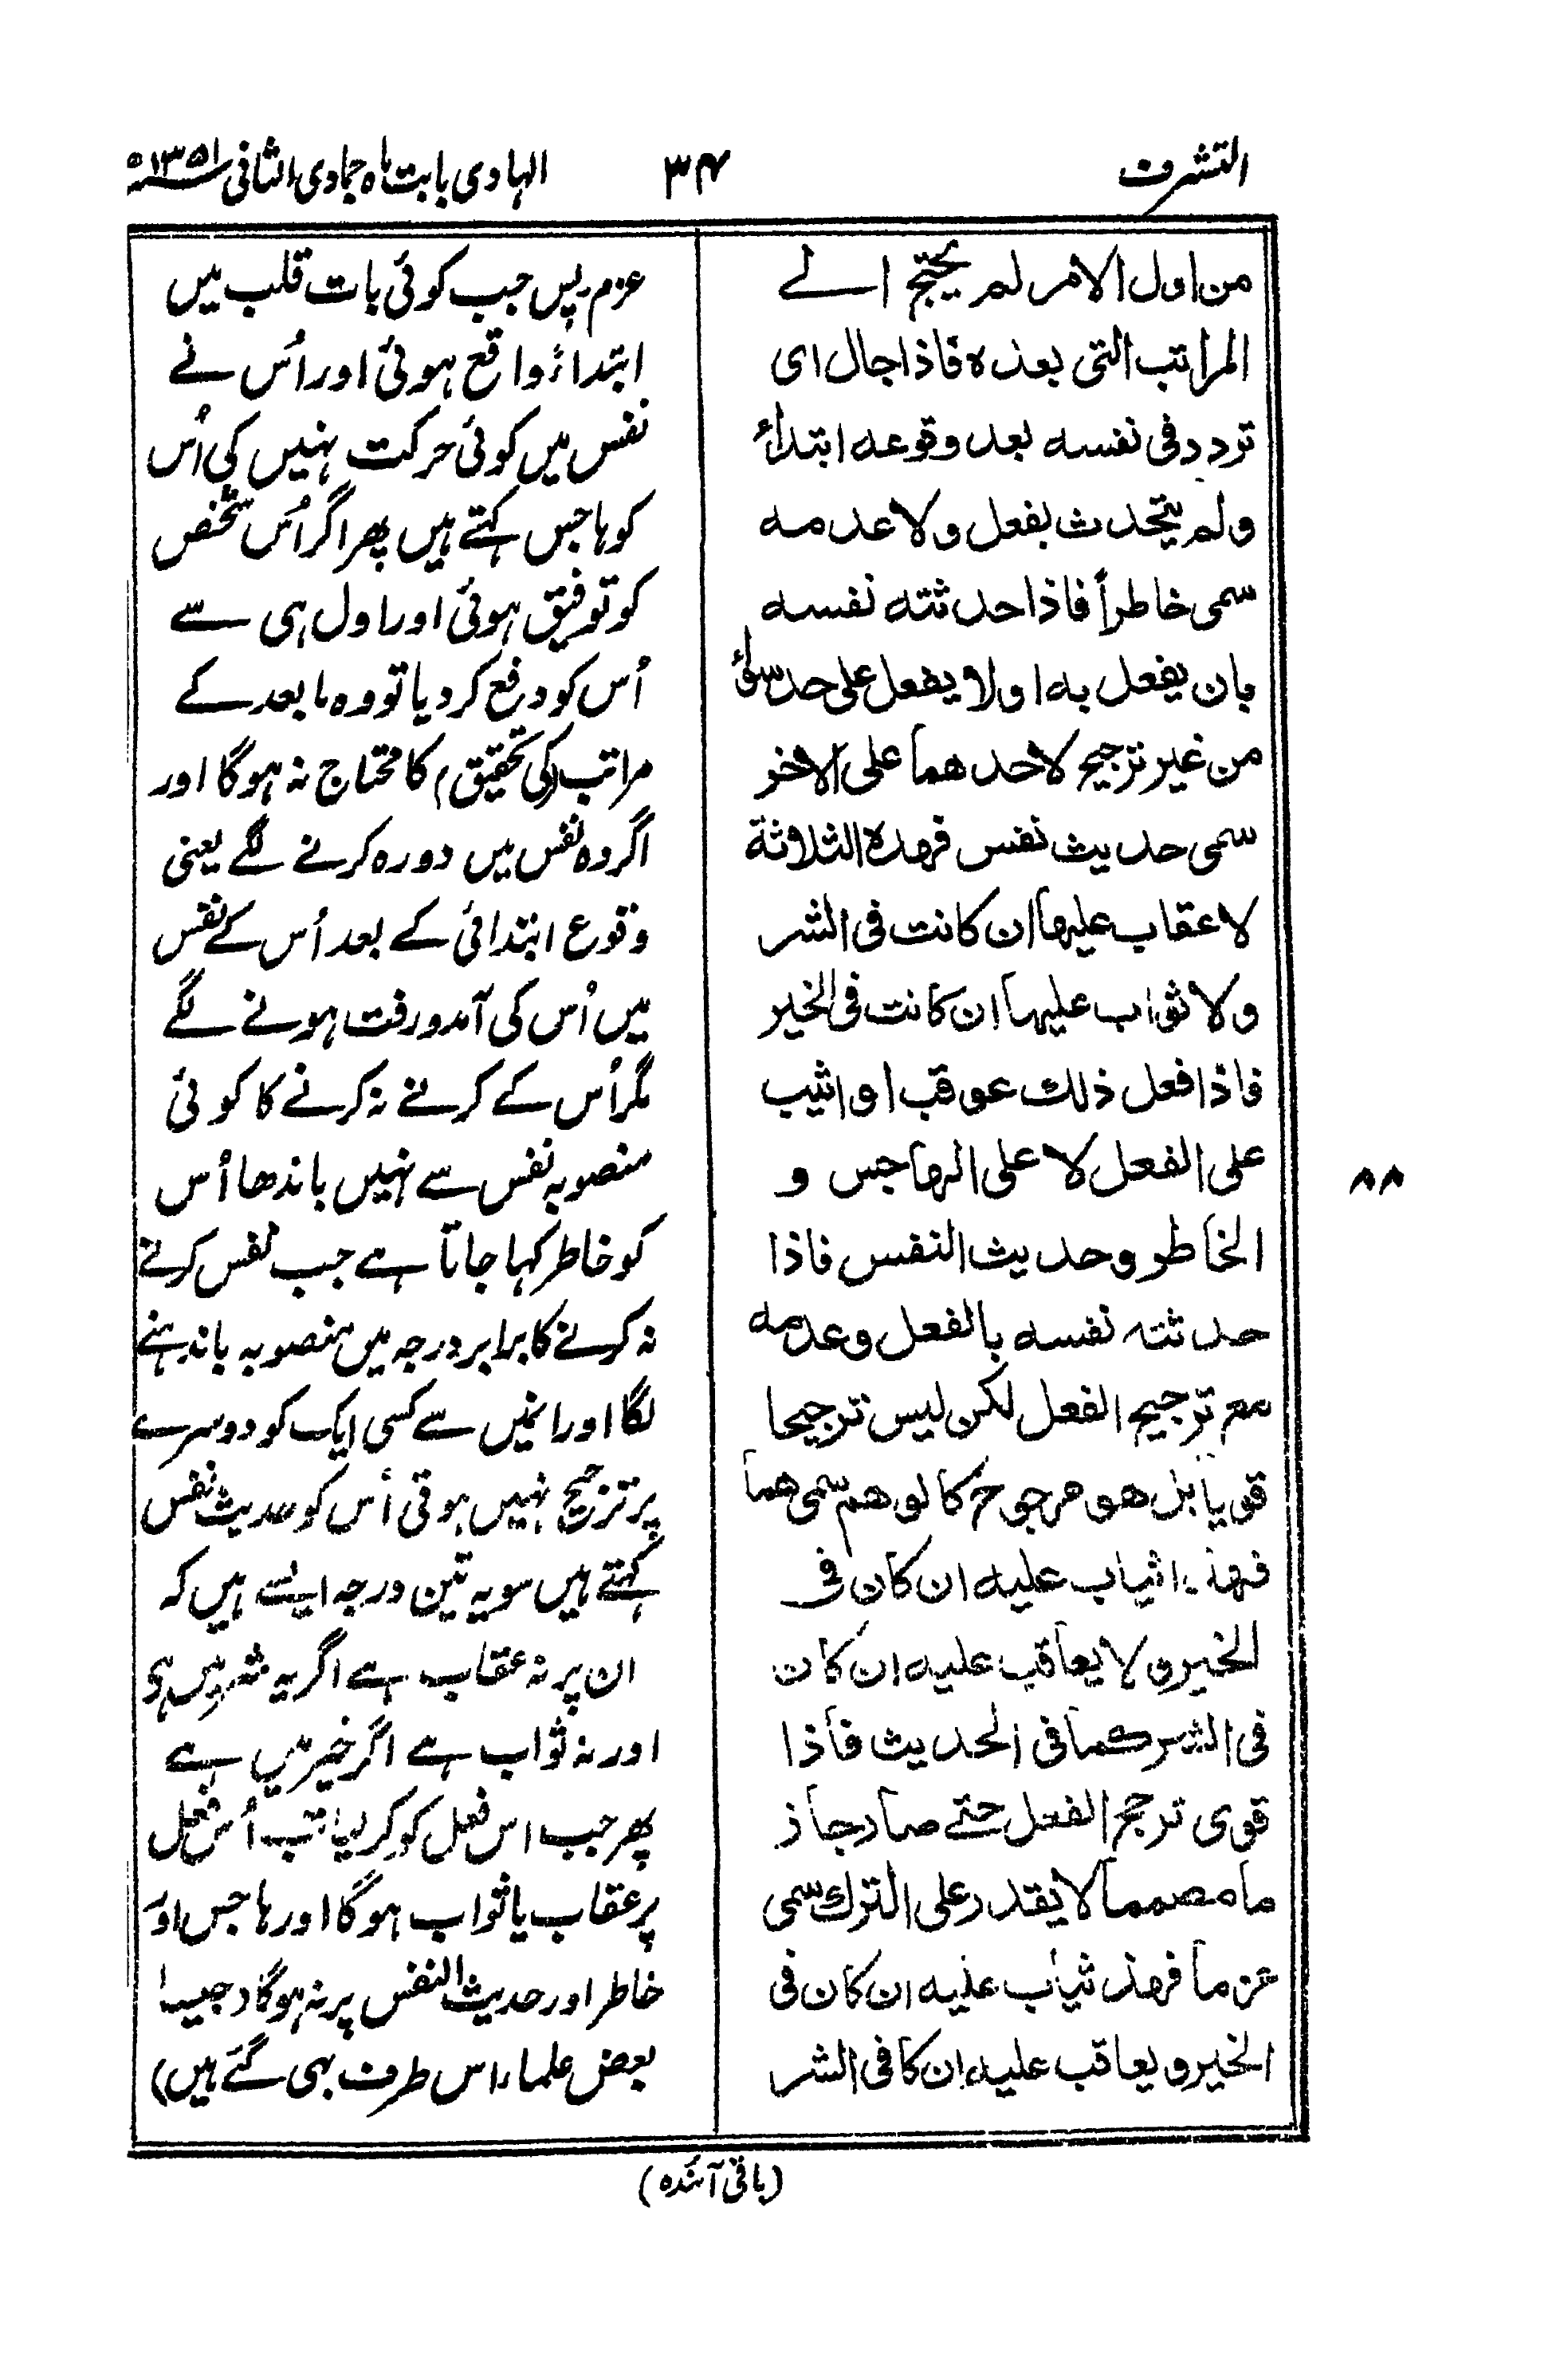 التشرف
۳۴
الہادی بابت ماہ جمادی الثانی ۱۳۵۱ھ
من اول الامر لم یحتج الے
المراتب التی بعدہ فاذا جال ای
تردد فی نفسہ بعد وقوعہ ابتداءً
ولم یتحدث بفعل ولا عدمہ
سمی خاطراً فاذا حدثتہ نفسہ
بان یفعل بہ او لا یفعل علی حد سواء
من غیر ترجیح لاحدھما علی الاخر
سمی حدیث نفس فھذہ الثلاثة
لا عقاب علیھا ان کانت فی الشر
ولا ثواب علیھا ان کانت فی الخیر
فاذا فعل ذلك عوقب او اثیب
علی الفعل لا علی الھاجس و
الخاطر وحدیث النفس فاذا
حدثتہ نفسہ بالفعل وعدمہ
مع ترجیح الفعل لکن لیس ترجیحا
قویا بل ھو مرجوح کالوھم سمی ھما
فھذا یثاب علیہ ان کان فی
الخیر ولا یعاقب علیہ ان کان
فی الشر کما فی الحدیث فاذا
قوی ترجح الفعل حتے صار جاز
ما مصمما لا یقدر علی الترك سمی
عزما فھذا یثاب علیہ ان کان فی
الخیر و یعاقب علیہ ان کا فی الشر
عزم پس جب کوئی بات قلب میں
ابتداءً واقع ہوئی اور اُس نے
نفس میں کوئی حرکت نہیں کی اُس
کو ہاجس کہتے ہیں پھر اگر اُس شخص
کو توفیق ہوئی اور اول ہی سے
اُس کو دفع کر دیا تو وہ ما بعد کے
مراتب (کی تحقیق) کا محتاج نہ ہوگا اور
اگر وہ نفس میں دورہ کرنے لگے یعنی
وقوع ابتدائی کے بعد اُس کے نفس
میں اُس کی آمد ورفت ہونے لگے
مگر اُس کے کرنے نہ کرنے کا کوئی
منصوبہ نفس سے نہیں باندھا اُس
کو خاطر کہا جاتا ہے جب نفس کرنے
نہ کرنے کا برابر درجہ میں منصوبہ باندہنے
لگا اور انمیں سے کسی ایک کو دوسرے
پر ترجیح نہیں ہوتی اُس کو حدیث نفس
کہتے ہیں سو یہ تین درجہ ایسے ہیں کہ
ان پر نہ عقاب ہے اگر یہ شر میں ہو
اور نہ ثواب ہے اگر خیر میں ہے
پھر جب اس فعل کو کر لیا تب اُس فعل
پر عقاب یا ثواب ہوگا اور ہاجس اور
خاطر اور حدیث النفس پر نہ ہوگا (جیسا
بعض علماء اس طرف بھی گئے ہیں)
۸۸
(باقی آئندہ)